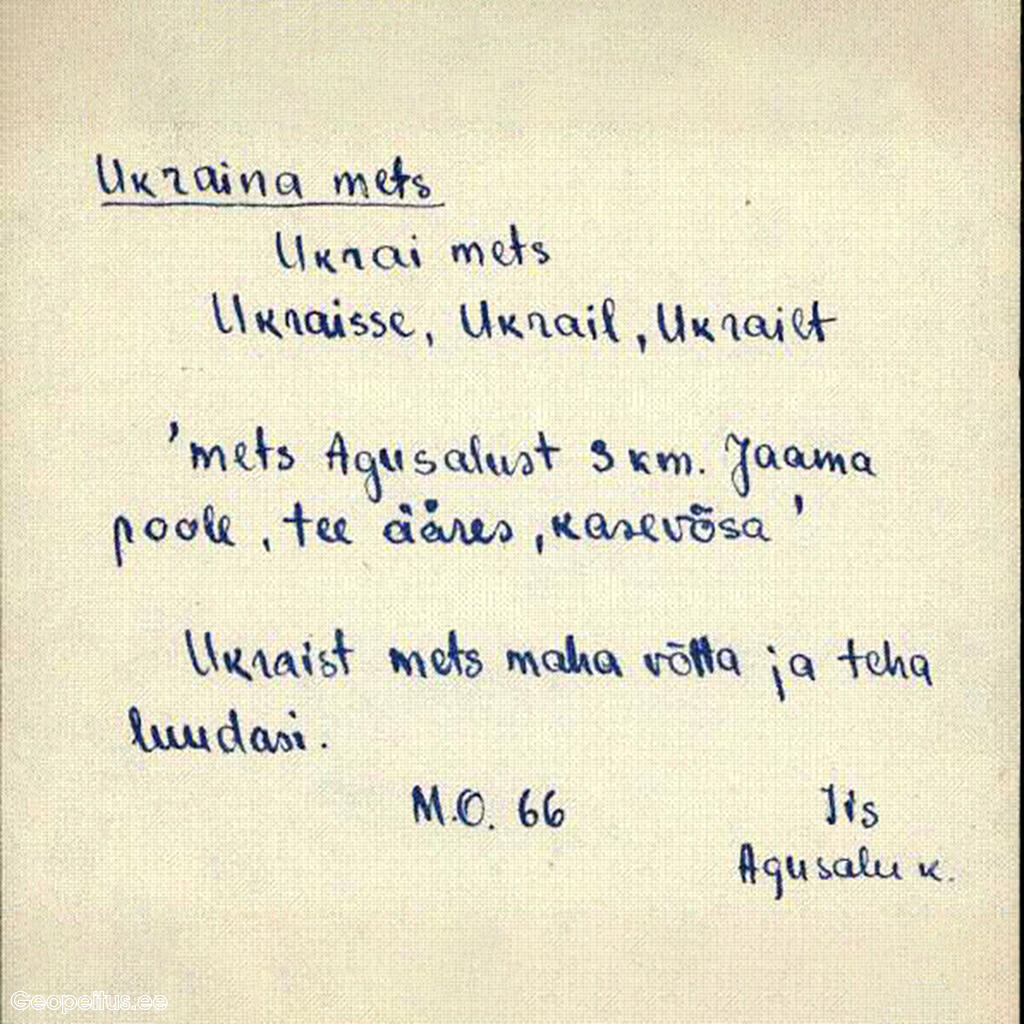 Ukraina mets
Ukrai mets
Ukraisse, Ukrail, Ukrailt
'mets Agusalust 3 km. Jaama
poole, tee ääres, kasevõsa'
Ukraist mets maha võtta ja teha
luudasi.
M.O. 66
Iis
Agusalu k.
Geopeitus.ee